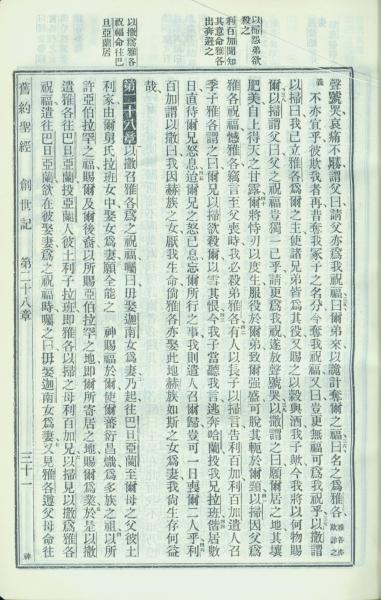 以掃怨弟欲
殺之
利百加聞知
其意命雅各
出奔避之
以撒爲雅各
祝福命往巴
旦亞蘭居
聲號哭哀痛不勝謂父曰請父亦爲我祝福曰爾弟來以詭計奪爾之福曰名之爲雅各
不亦宜乎彼欺我者再昔奪我冢子之名分今奪我祝福又曰豈更無福可爲我祝乎以撒謂
以掃曰我已立雅各爲爾之主使諸兄弟皆爲其役又賜之以穀與酒我子歟今我將以何物賜
爾以掃謂父曰父之祝福豈獨一已乎請更爲我祝遂放聲號哭以撒謂之曰願爾居之地其壤
肥美自上得天之甘露爾將恃刃以度生服役於爾弟致爾強盛可脫其軛於爾頸以掃因父爲
雅各祝福憾雅各竊言至父喪時我必殺弟雅各有人以長子以掃言告利百加利百加遣人召
季子雅各謂之曰爾兄以掃欲殺爾以雪其恨今我子當聽我言逃奔哈蘭投我兄拉班偕居數
日直待爾兄怒息迨爾兄之怒已息忘爾所行之事我則遣人召爾歸豈可一日喪爾二人乎利
百加謂以撒曰我因赫族之女厭我生命倘雅各亦娶此地赫族如斯之女爲妻我尚生存何益
哉
第二十八章以撒召雅各爲之祝福囑曰毋娶迦南女爲妻乃起往巴旦亞蘭至爾母之父彼土
利家由爾舅氏拉班女中娶女爲妻願全能之 神賜福於爾使爾蕃衍昌熾爲多族之祖以所
許亞伯拉罕之福賜爾及爾後裔以所賜亞伯拉罕之地即爾所寄居之地賜爾爲業於是以撒
遣雅各往巴旦亞蘭投亞蘭人彼土利子拉班即雅各以掃之母利百加兄以掃見以撒爲雅各
祝福遣往巴旦亞蘭欲在彼娶妻爲之祝福時囑之曰毋娶迦南女爲妻又見雅各遵父母命往
舊約聖經 創世記 第二十八章 三十一